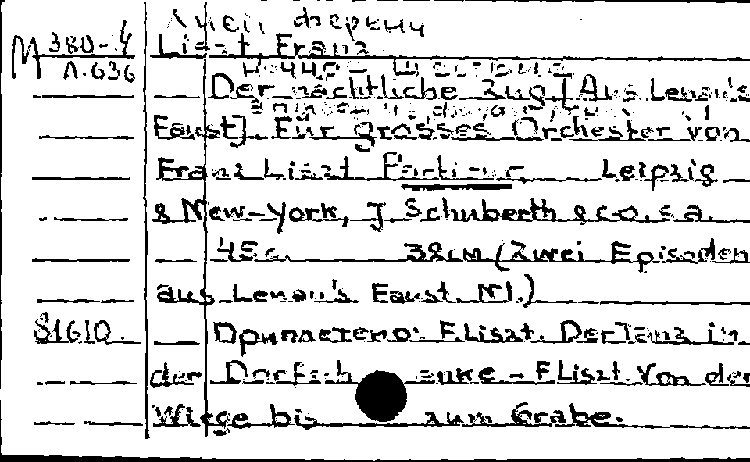 Лист Ференц
М 380-4 Liszt, Franz
Л.636 Ночное шествие
Der nächtliche Zug. [Aus Lenau's
Faust]. Für grosses Orchester von
Franz Liszt Partitur. Leipzig
& New-York, J. Schuberth & co, s.a.
45 с. 32см (Zwei Episoden
aus Lenau's Faust. N1.)
81610 Приплетено: F. Liszt. Der Tanz in
der Dorfschenke - F Liszt. Von der
Wiege bis zum Grabe.